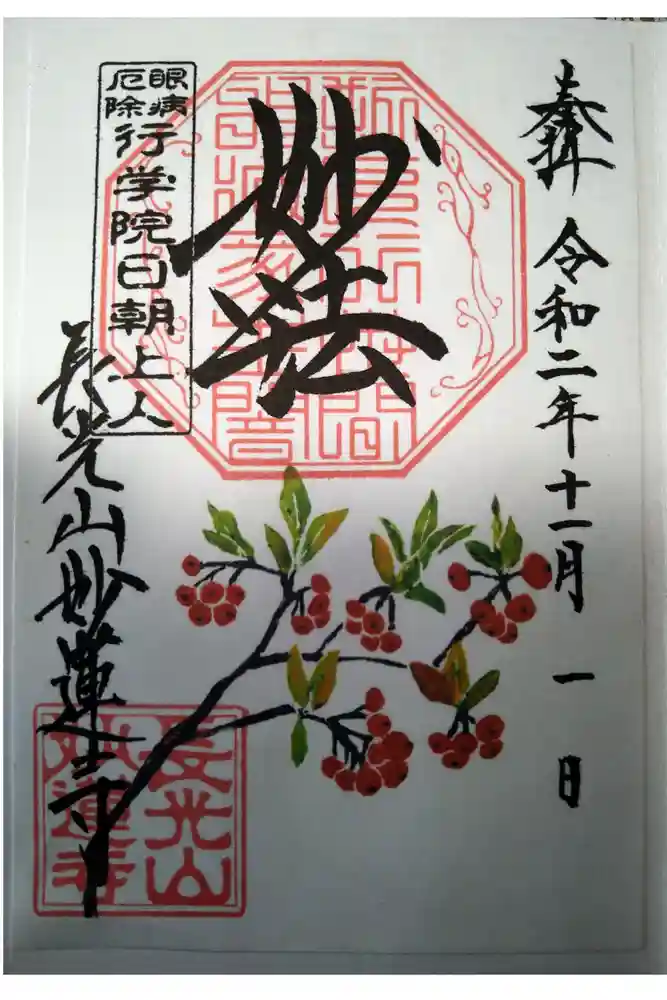 奉拝
令和二年十一月一日
妙法
眼病
厄除
行学院日朝上人
長光山妙蓮寺
長光山
妙蓮寺